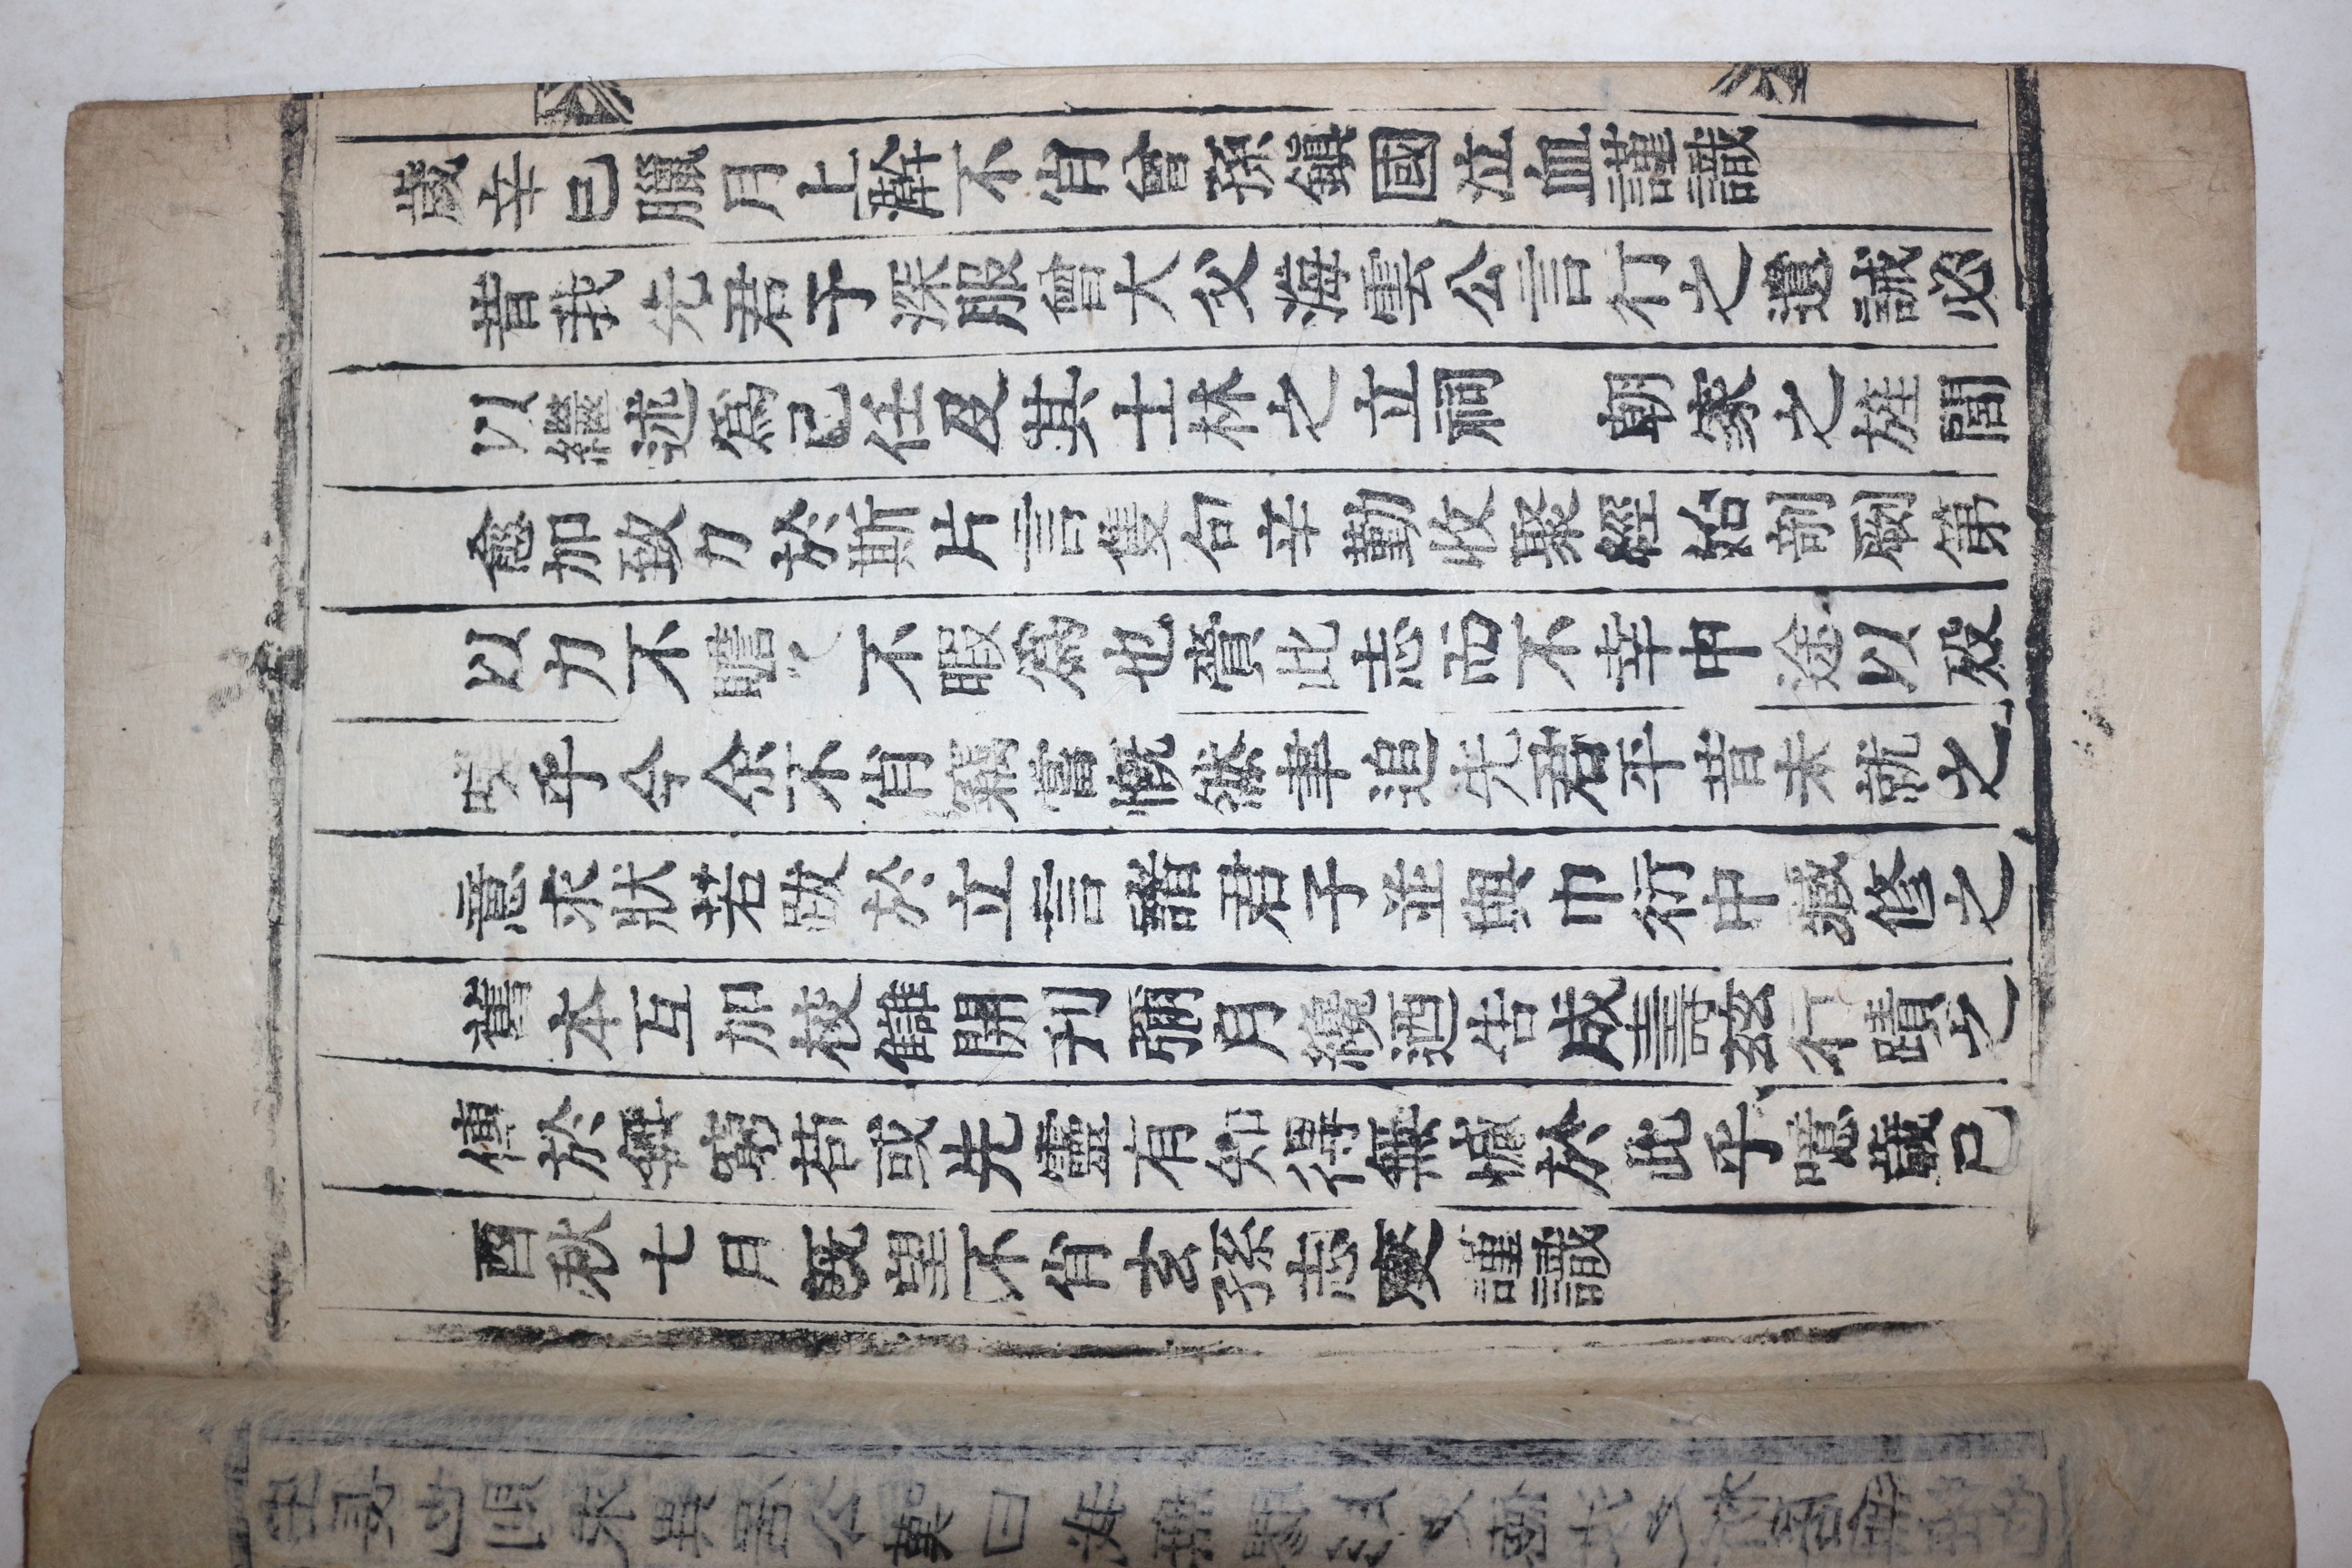 歲辛巳臘月上澣不肖曾孫鎭國泣血謹識
昔我先君子深服曾大父海雲公言行之遺誡必
以繼述爲己任及其士林之立祠 朝家之旌閭
愈加致力於斯片言隻句辛勤收聚經始剞劂第
以力不贍 不暇爲也賫此志而不幸中途以歿
嗟乎今余不肖竊嘗慨然聿追先君平昔未就之
意求狀若跋於立言諸君子並與巾衍中藏修之
舊本互加校讎開刋彌月纔迺告成壽玆行蹟之
傳於無窮若或先靈有知得無憾於此乎噫歲己
酉秋七月旣望不肖玄孫志燮謹識